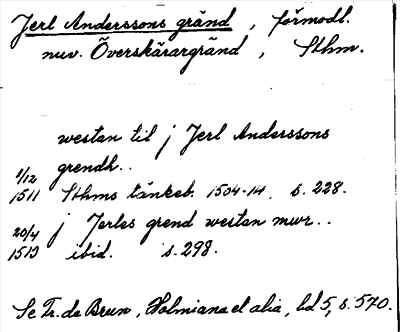 Jerl Anderssons gränd, förmodl.
nuv. Överskärargränd, Sthm.
westan til j Jerl Anderssons
grendh..
1/12
1511 Sthms tänkeb. 1504-14, s. 228.
20/4 j Jerles grend westan mwr..
1513 ibid. s. 298.
Se Fr. de Brun, Holmiana et alia, bd 5, s. 570.